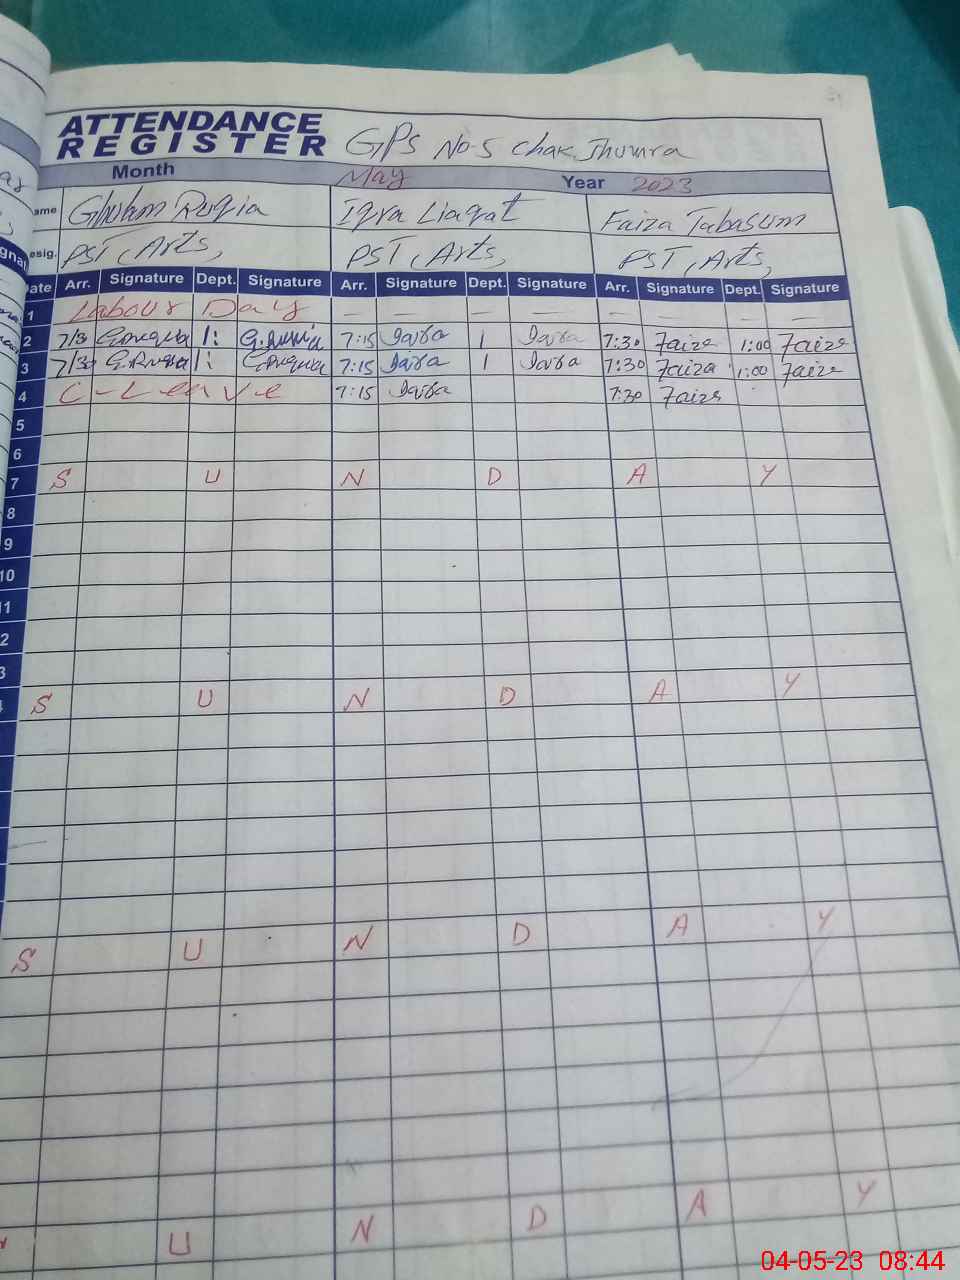 ATTENDANCE
REGISTER GPS No-5 Chak Jhumra
Month May Year 2023
ame Ghulam Ruqia Iqra Liaqat Faiza Tabasum
esig. PST, Arts, PST, Arts, PST, Arts,
Date Arr. Signature Dept. Signature Arr. Signature Dept. Signature Arr. Signature Dept. Signature
1 Labour Day — — — — — — — —
2 7/30 1: 7:15 1 7:30 Faiza 1:00 Faiza
3 7/30 1: 7:15 1 7:30 Faiza 1:00 Faiza
4 C-Leave 7:15 7:30 Faiza
5
6
7 S U N D A Y
8
9
10
11
2
3
S U N D A Y
S U N D A Y
U N D A Y
04-05-23 08:44